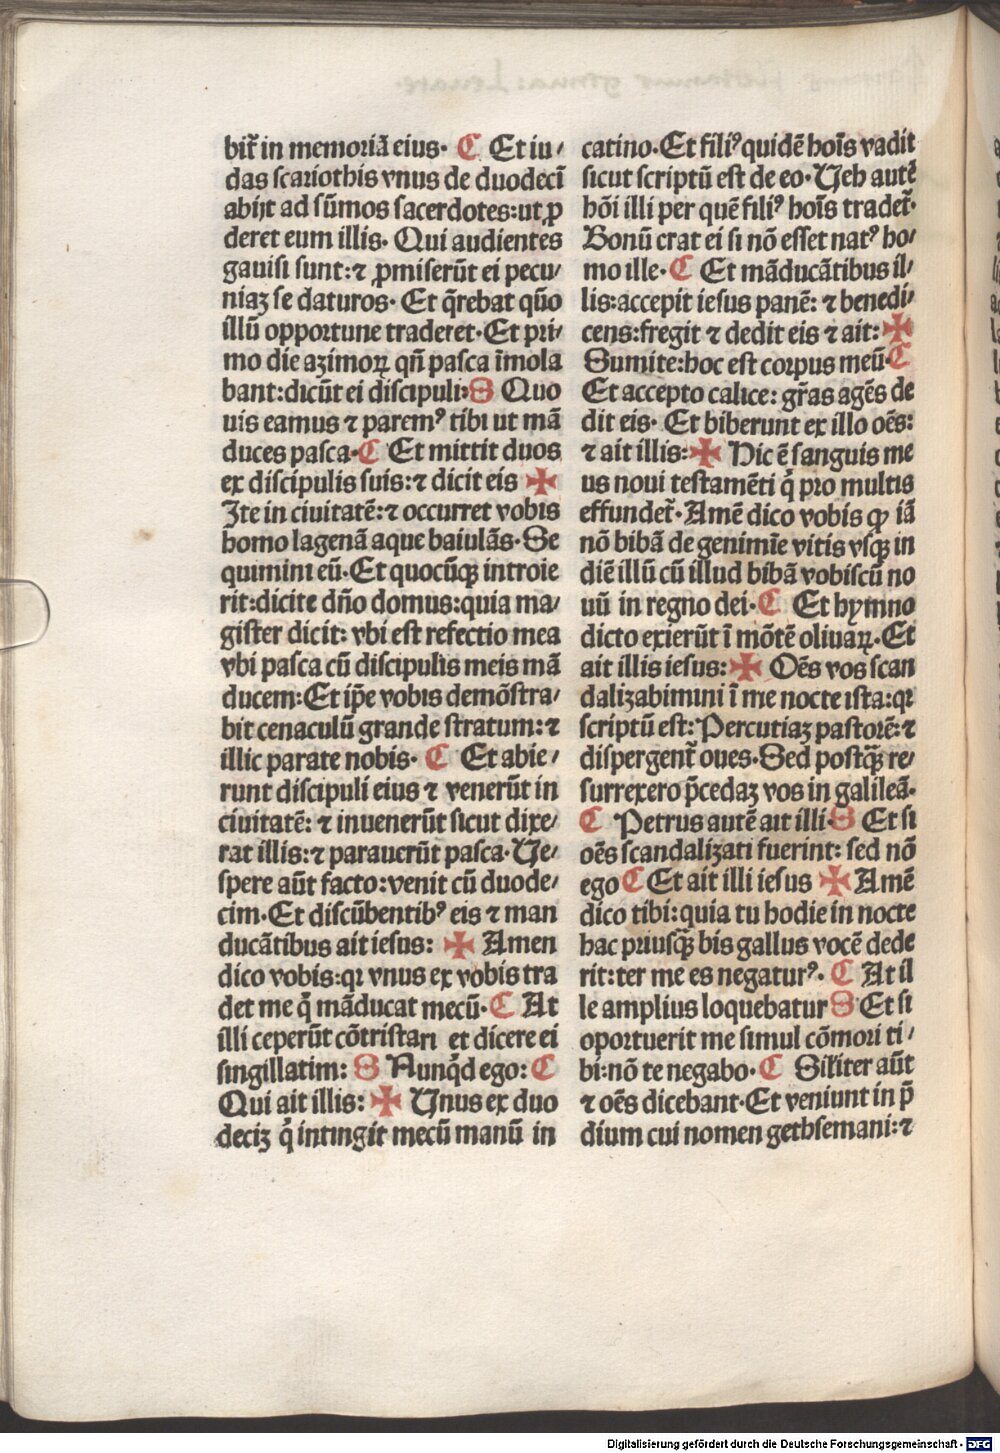 bit᷑ in memoriā eius· C Et iu⸗
das scariothis vnus de duodecī
abijt ad sūmos sacerdotes:ut ꝓ
deret eum illis· Qui audientes
gauisi sunt:⁊ ꝓmiserūt ei pecu⸗
niaꝫ se daturos· Et q̄rebat quō
illū opportune traderet·Et pri⸗
mo die azimoꝝ qn̄ pasca īmola
bant:dicūt ei discipuli:S Quo
uis eamus ⁊ paremꝰ tibi ut mā
duces pasca·C Et mittit duos
ex discipulis suis:⁊ dicit eis ✠
Ite in ciuitatē:⁊ occurret vobis
homo lagenā aque baiulās·Se
quimini eū·Et quocūqꝫ introie
rit:dicite dño domus:quia ma⸗
gister dicit: vbi est refectio mea
vbi pasca cū discipulis meis mā
ducem:Et ip̄e vobis demōstra⸗
bit cenaculū grande stratum:⁊
illic parate nobis· C Et abie⸗
runt discipuli eius ⁊ venerūt in
ciuitatē: ⁊ inuenerūt sicut dixe⸗
rat illis:⁊ parauerūt pasca·Ve⸗
spere aūt facto:venit cū duode⸗
cim·Et discūbentibꝰ eis ⁊ man
ducātibus ait iesus: ✠ Amen
dico vobis:qꝛ vnus ex vobis tra
det me q̇ māducat mecū·C At
illi ceperūt cōtristari et dicere ei
singillatim: S Nunq̇d ego: C
Qui ait illis: ✠ Vnus ex duo
deciꝫ q̇ intingit mecū manū in
catino·Et filiꝰ quidē hoīs vadit
sicut scriptū est de eo·Veh autē
hōi illi per quē filiꝰ hoīs tradet᷑·
Bonū erat ei si nō esset natꝰ ho⸗
mo ille· C Et māducātibus il⸗
lis:accepit iesus panē: ⁊ benedi⸗
cens:fregit ⁊ dedit eis ⁊ ait: ✠
Sumite:hoc est corpus meū·C
Et accepto calice: gr̄as agēs de
dit eis· Et biberunt ex illo oēs:
⁊ ait illis: ✠ Hic ē sanguis me
us noui testamēti q̇ pro multis
effundet᷑·Amē dico vobis ꝙ iā
nō bibā de genimīe vitis vsqꝫ in
diē illū cū illud bibā vobiscū no
uū in regno dei·C Et hymno
dicto exierūt ī mōtē oliuaꝝ·Et
ait illis iesus: ✠ Oēs vos scan
dalizabimini ī me nocte ista:qꝛ
scriptū est:Percutiaꝫ pastorē:⁊
dispergent᷑ oues·Sed postq̄ꝫ re⸗
surrexero p̄cedaꝫ vos in galileā·
C Petrus autē ait illi·S Et si
oēs scandalizati fuerint: sed nō
ego C Et ait illi iesus ✠ Amē
dico tibi:quia tu hodie in nocte
hac priusq̄ꝫ bis gallus vocē dede
rit:ter me es negaturꝰ· C At il
le amplius loquebatur S Et si
oportuerit me simul cōmori ti⸗
bi:nō te negabo· C Sil̄iter aūt
⁊ oēs dicebant·Et veniunt in p̄
dium cui nomen gethsemani:⁊
Digitalisierung gefördert durch die Deutsche Forschungsgemeinschaft - DFG